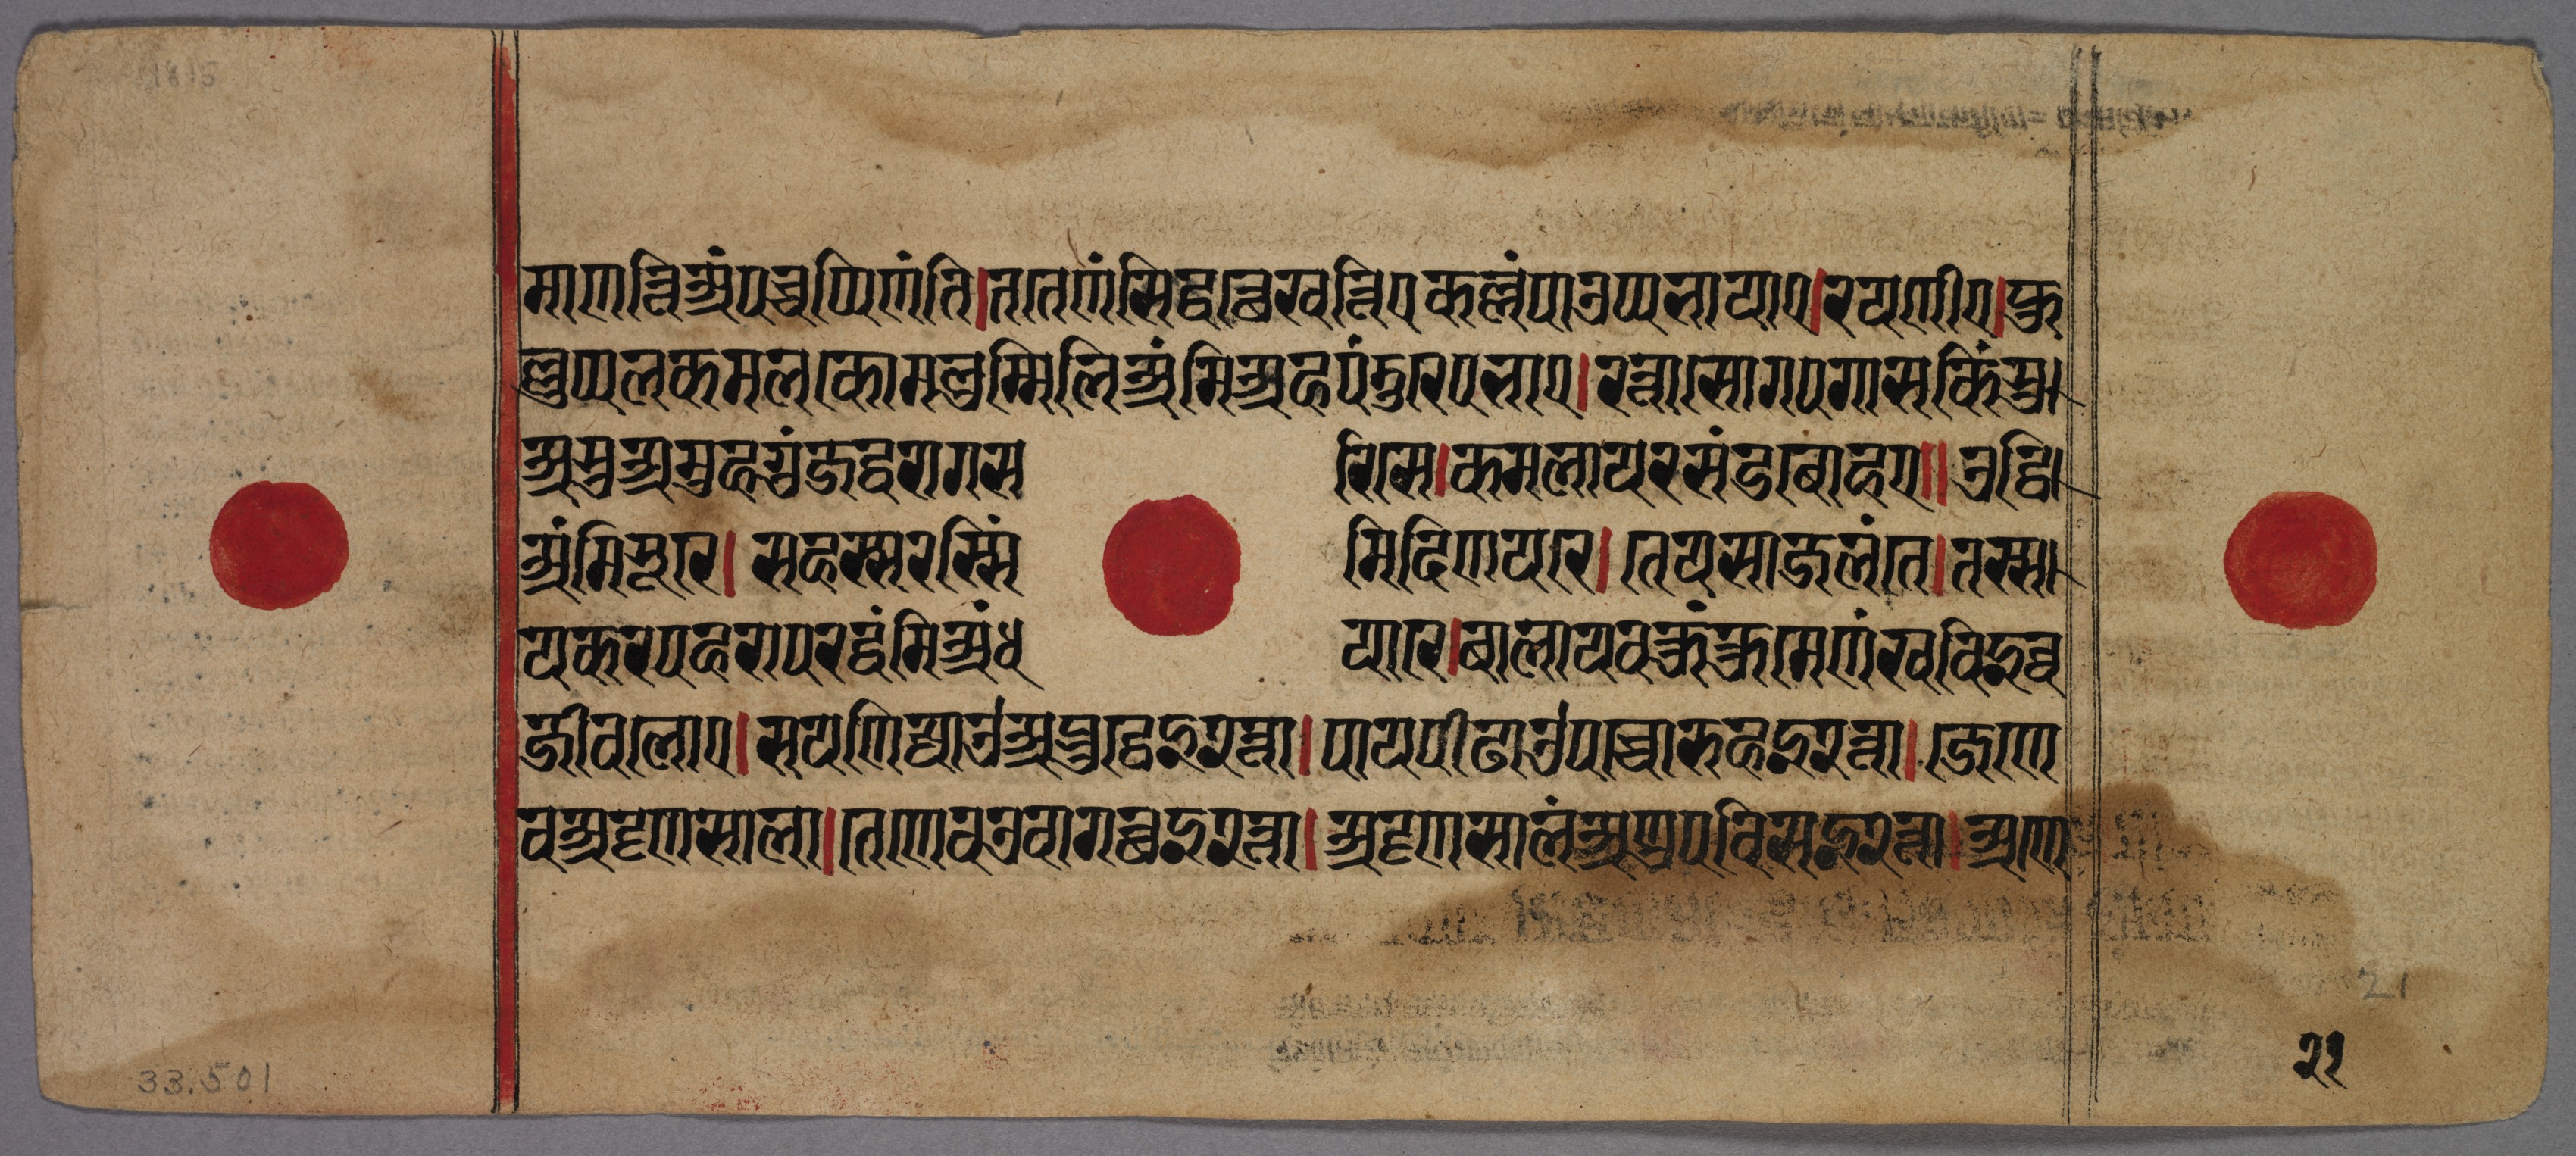 1815
माणत्तिअंपच्चप्पिणंति।तएणंसिद्धत्थेखत्तिएकल्लंपाउप्पभायाए।रयणीए।फु
ल्लुप्पलकमलकोमलुम्मिलिअंमिअहपंडुरेपभाए।रत्तासोगपगासकिंसु।
असुअमुहगुंजद्धरागस रिसे।कमलायरसंडबोहए॥उट्ठि।
अंमिसूरे। सहस्सरस्सिं मिदिणयरे। तेयसाजलंते।तस्स।
यकरपहरापरद्धंमिअंध यारे।बालायवकुंकुमेणंखचिएव्व
जीवलोए।सयणिज्जाउंअब्भुट्ठेइ२त्ता।पायपीढाउंपच्चोरुहइ२त्ता।जेणे
वअट्टणसाला।तेणेवउवागच्छइ२त्ता।अट्टणसालंअणुपविसइ२त्ता।अणे
21
२१
33.501